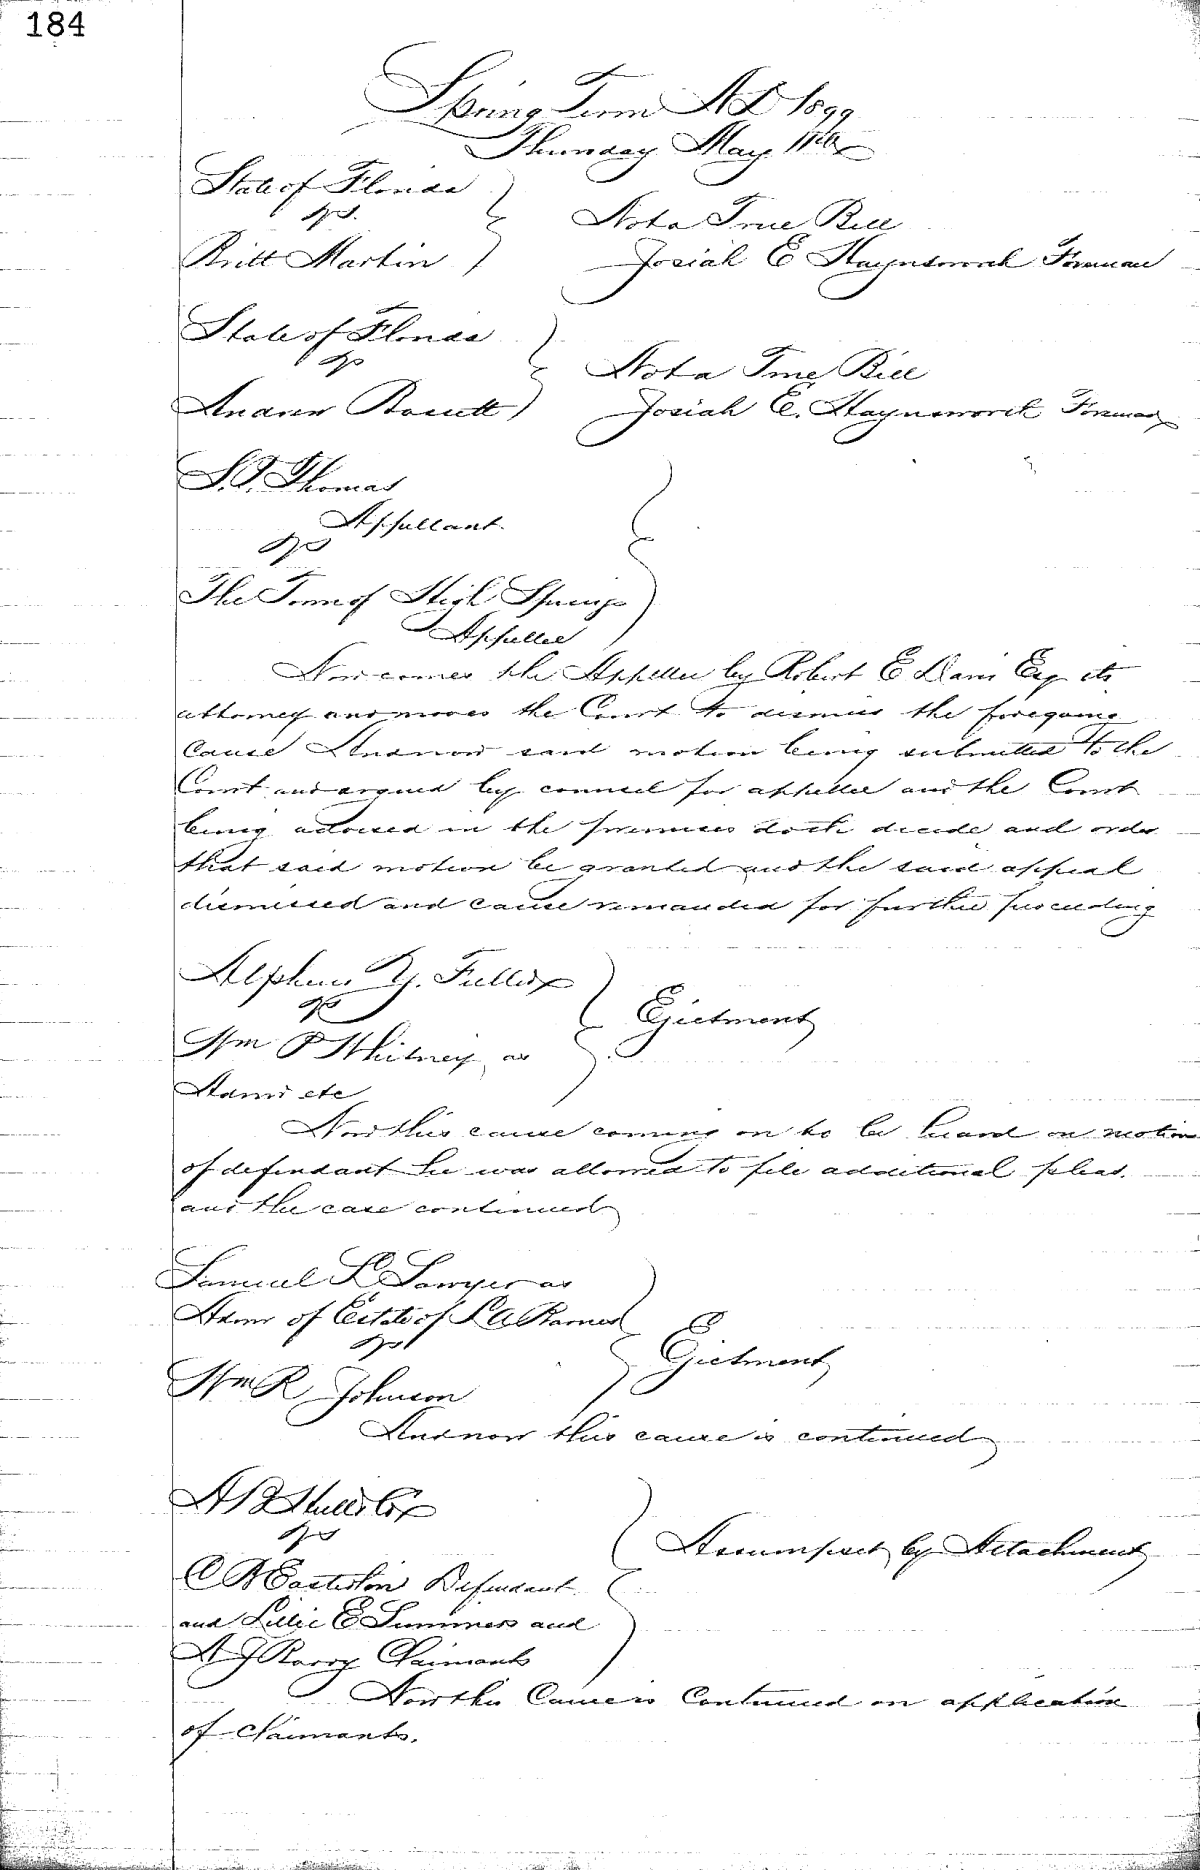 184
Spring Term AD 1899
Thursday May 11th
State of Florida
vs.
Not a True Bill
Britt Martin
Josiah E Haynsworth Foreman
State of Florida
vs
Not a True Bill
Andrew
Josiah E. Haynsworth Foreman
S. J. Thomas
Appellant
vs
The Town of High Springs
Appellee
Now comes the Appellee by Robert E Davis Esq its
attorney and moves the Court to dismiss the foregoing
Cause And now said motion being submitted to the
Court and argued by counsel for appellee and the Court
being advised in the premises doth decide and order
that said motion be granted and the said appeal
dismissed and cause remanded for further proceeding
Alpheus Y. Fuller
vs
Ejectment
Wm P Whitney as
Admr etc
Now this cause coming on to be heard on motion
of defendant he was allowed to file additional pleas.
and the case continued
Samuel L Sawyer as
Admr of Estate of L A Barnes
vs
Ejectment
Wm R Johnson
And now this cause is continued
A B Hull Co
vs
Assumpsit by Attachment
C B Easterlin Defendant
and Lillie E Summers and
Claimants
Now this Cause is Continued on application
of Claimants.